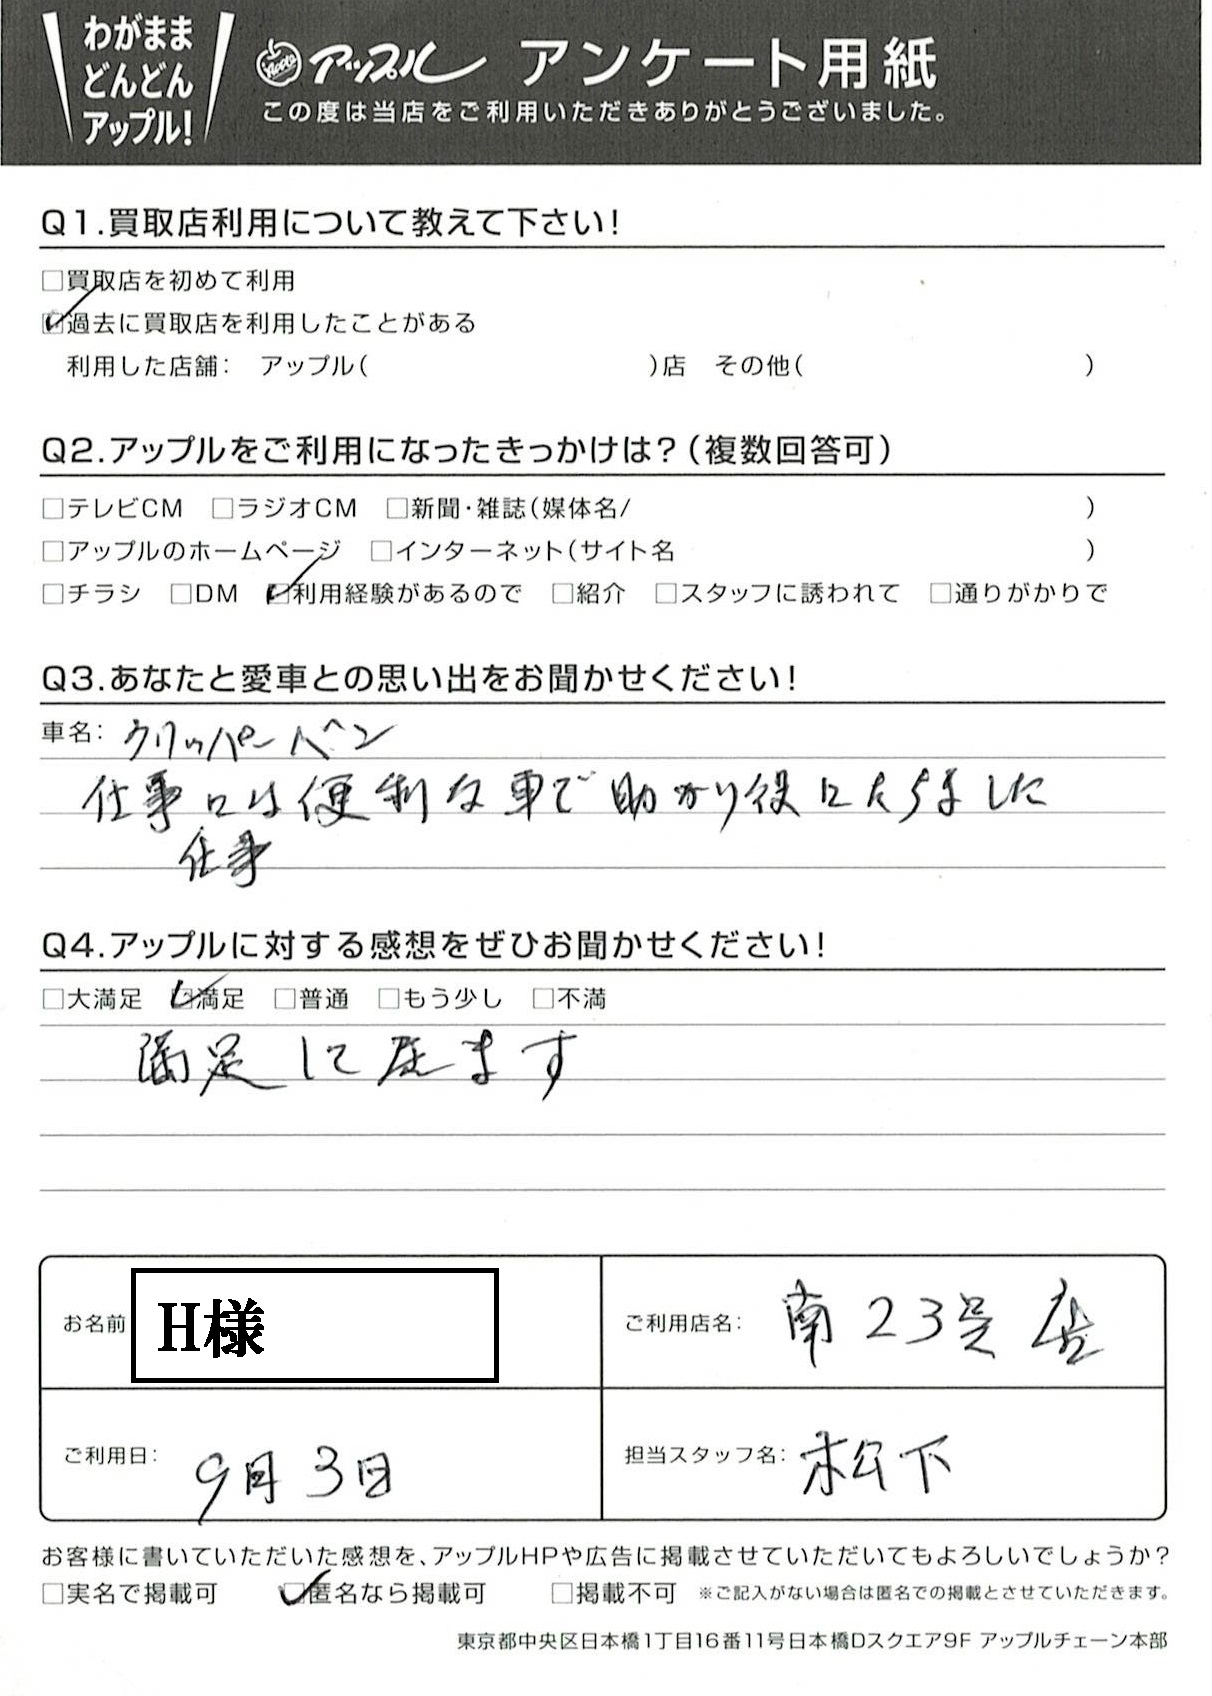 わがまま
どんどん
アップル!
Apple アップル アンケート用紙
この度は当店をご利用いただきありがとうございました。
Q1.買取店利用について教えて下さい!
□買取店を初めて利用
☑過去に買取店を利用したことがある
利用した店舗: アップル( )店 その他( )
Q2.アップルをご利用になったきっかけは?(複数回答可)
□テレビCM □ラジオCM □新聞・雑誌(媒体名/ )
□アップルのホームページ □インターネット(サイト名 )
□チラシ □DM ☑利用経験があるので □紹介 □スタッフに誘われて □通りがかりで
Q3.あなたと愛車との思い出をお聞かせください!
車名: クリッパーバン
仕事には便利な車で助かり役にたちました
仕事
Q4.アップルに対する感想をぜひお聞かせください!
□大満足 ☑満足 □普通 □もう少し □不満
満足して居ます
お名前 H様
ご利用店名: 南23号店
ご利用日: 9月3日
担当スタッフ名: 松下
お客様に書いていただいた感想を、アップルHPや広告に掲載させていただいてもよろしいでしょうか?
□実名で掲載可 ☑匿名なら掲載可 □掲載不可 ※ご記入がない場合は匿名での掲載とさせていただきます。
東京都中央区日本橋1丁目16番11号日本橋Dスクエア9F アップルチェーン本部